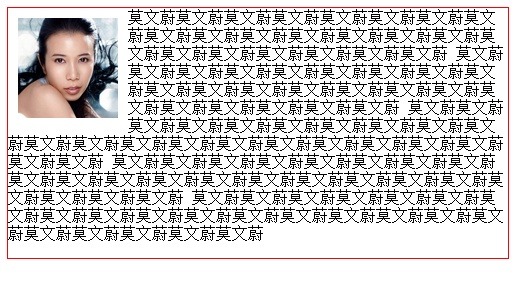 莫文蔚莫文蔚莫文蔚莫文蔚莫文蔚莫文蔚莫文蔚莫文
蔚莫文蔚莫文蔚莫文蔚莫文蔚莫文蔚莫文蔚莫文蔚莫
文蔚莫文蔚莫文蔚莫文蔚莫文蔚莫文蔚莫文蔚 莫文蔚
莫文蔚莫文蔚莫文蔚莫文蔚莫文蔚莫文蔚莫文蔚莫文
蔚莫文蔚莫文蔚莫文蔚莫文蔚莫文蔚莫文蔚莫文蔚莫
文蔚莫文蔚莫文蔚莫文蔚莫文蔚莫文蔚 莫文蔚莫文蔚
莫文蔚莫文蔚莫文蔚莫文蔚莫文蔚莫文蔚莫文蔚莫文
蔚莫文蔚莫文蔚莫文蔚莫文蔚莫文蔚莫文蔚莫文蔚莫文蔚莫文蔚莫文蔚
莫文蔚莫文蔚 莫文蔚莫文蔚莫文蔚莫文蔚莫文蔚莫文蔚莫文蔚莫文蔚
莫文蔚莫文蔚莫文蔚莫文蔚莫文蔚莫文蔚莫文蔚莫文蔚莫文蔚莫文蔚莫
文蔚莫文蔚莫文蔚莫文蔚 莫文蔚莫文蔚莫文蔚莫文蔚莫文蔚莫文蔚莫
文蔚莫文蔚莫文蔚莫文蔚莫文蔚莫文蔚莫文蔚莫文蔚莫文蔚莫文蔚莫文
蔚莫文蔚莫文蔚莫文蔚莫文蔚莫文蔚